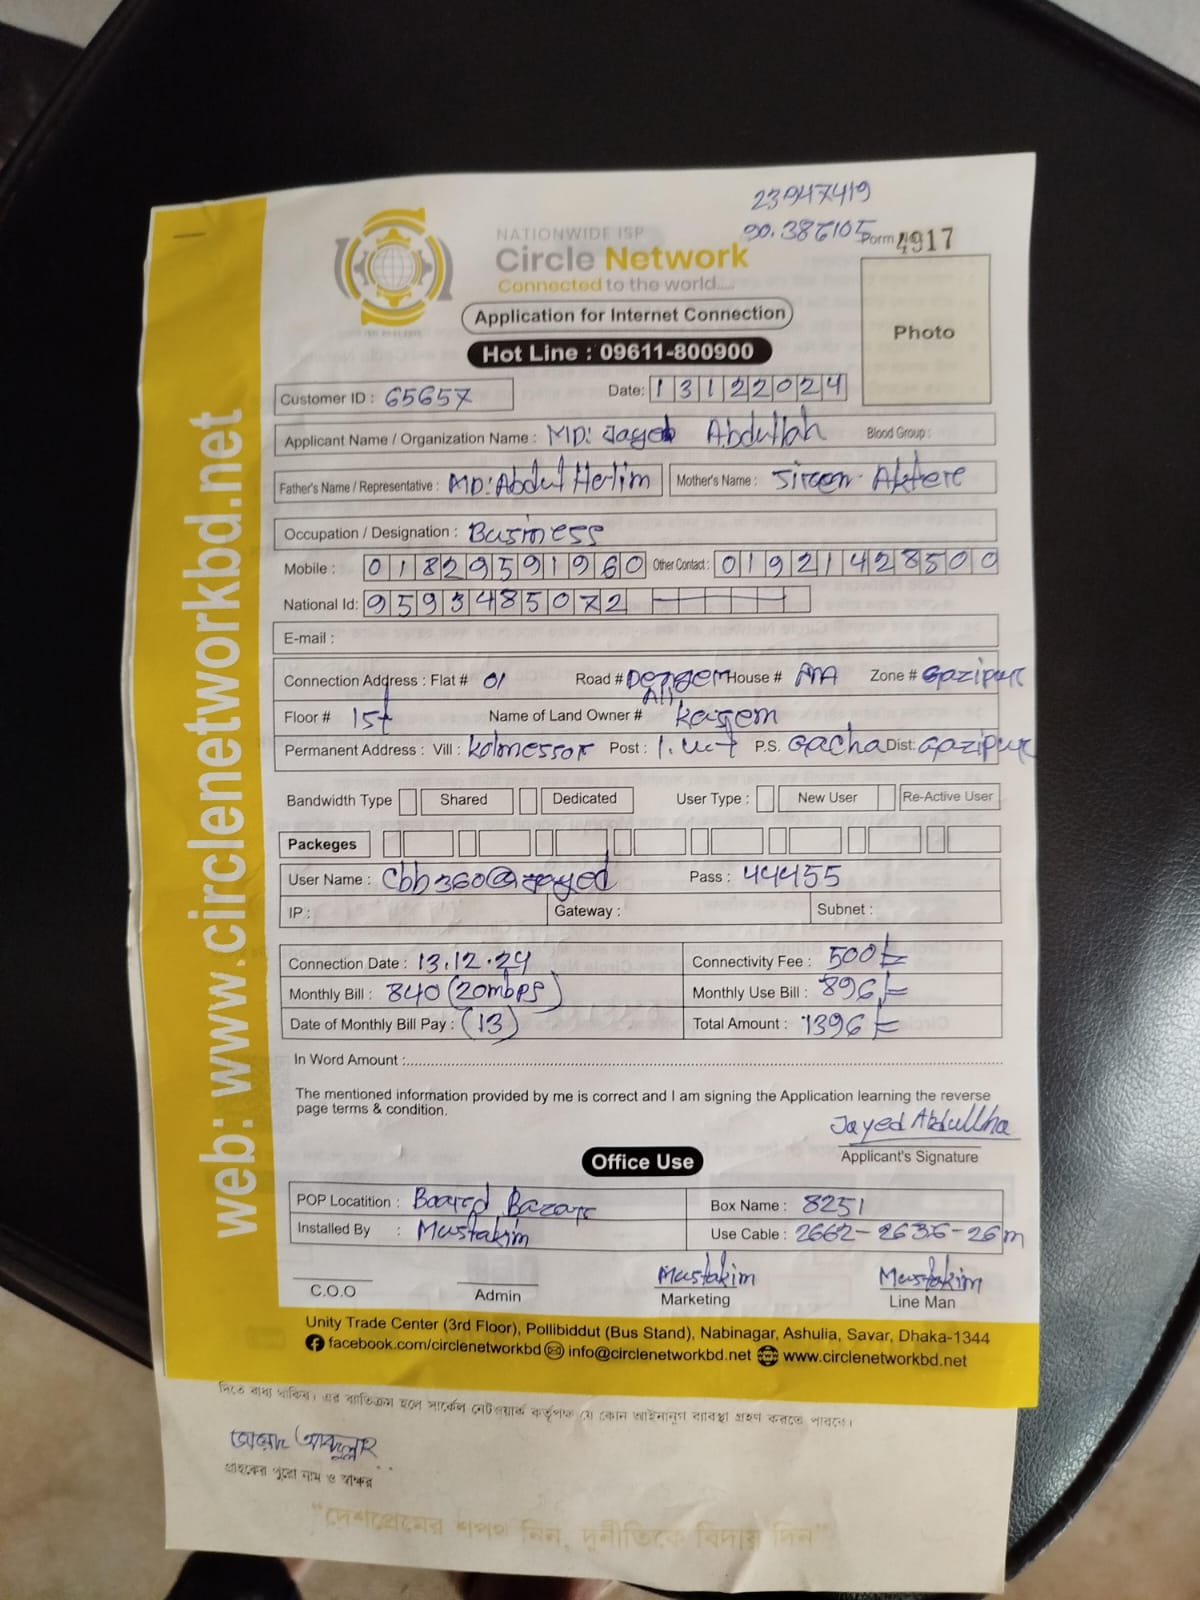 23947419
90.386105
Form 4917
NATIONWIDE ISP
Circle Network
Connected to the world....
Application for Internet Connection
Hot Line : 09611-800900
Photo
Customer ID : 65657 Date: 13122024
Applicant Name / Organization Name : MD: Jayed Abdullah Blood Group :
Father's Name / Representative : MD: Abdul Halim Mother's Name : Sireen Aktere
Occupation / Designation : Business
Mobile : 01829591960 Other Contact : 01921428500
National Id: 9593485072
E-mail :
Connection Address : Flat # 01 Road # House # Zone # Gazipur
Floor # 1st Name of Land Owner # Kasem
Permanent Address : Vill : Kolmessor Post : P.S. Gacha Dist: Gazipur
Bandwidth Type Shared Dedicated User Type : New User Re-Active User
Packeges
User Name : Cbb360@jayed Pass : 44455
IP : Gateway : Subnet :
Connection Date : 13.12.24 Connectivity Fee : 500/=
Monthly Bill : 840 (20mbps) Monthly Use Bill : 896/=
Date of Monthly Bill Pay : (13) Total Amount : 1396/=
In Word Amount :
The mentioned information provided by me is correct and I am signing the Application learning the reverse
page terms & condition.
Jayed Abdullha
Applicant's Signature
Office Use
POP Locatition : Board Bazar Box Name : 8251
Installed By : Mustakim Use Cable : 2662-2636-26m
Mustakim Mustakim
C.O.O Admin Marketing Line Man
Unity Trade Center (3rd Floor), Pollibiddut (Bus Stand), Nabinagar, Ashulia, Savar, Dhaka-1344
facebook.com/circlenetworkbd info@circlenetworkbd.net www.circlenetworkbd.net
web: www.circlenetworkbd.net
দিতে বাধ্য থাকিব। এর ব্যতিক্রম হলে সার্কেল নেটওয়ার্ক কর্তৃপক্ষ যে কোন আইনানুগ ব্যবস্থা গ্রহণ করতে পারবে।
জায়েদ আব্দুল্লাহ
গ্রাহকের পুরো নাম ও স্বাক্ষর
"দেশপ্রেমের শপথ নিন, দুর্নীতিকে বিদায় দিন"